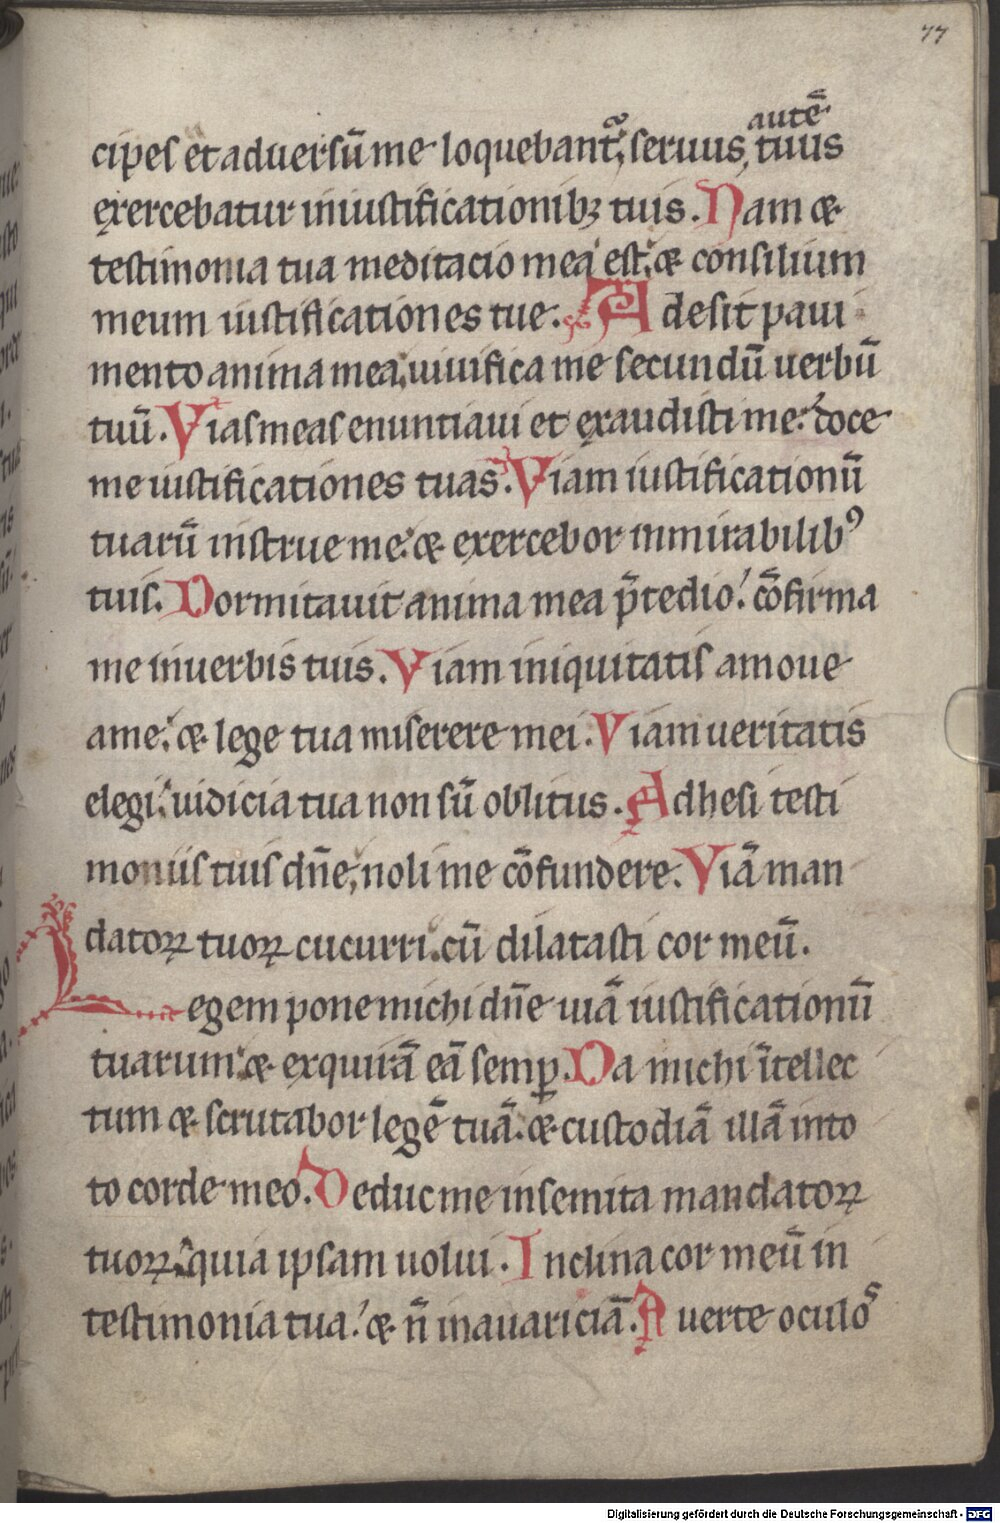 77
autē
cipes et aduersū me loquebant᷑, seruus, tuus
exercebatur in iustificationibꝫ tuis. Nam &
testimonia tua meditacio mea est, & consilium
meum iustificationes tue. Adesit paui
mento anima mea, uiuifica me secundū uerbū
tuū. Vias meas enuntiaui et exaudisti me: doce
me iustificationes tuas. Viam iustificationū
tuarū instrue me: & exercebor in mirabilibꝰ
tuis. Dormitauit anima mea p̄ tedio: cōfirma
me in uerbis tuis. Viam iniquitatis amoue
a me: & lege tua miserere mei. Viam ueritatis
elegi: iudicia tua non sū oblitus. Adhesi testi
moniis tuis dn̄e, noli me cōfundere. Viā man
datoꝝ tuoꝝ cucurri. cū dilatasti cor meū.
Legem pone michi dn̄e uiā iustificationū
tuarum: & exquirā eā semꝑ. Da michi ītellec
tum & scrutabor legē tuā: & custodiā illā in to
to corde meo. Deduc me in semita mandatoꝝ
tuoꝝ: quia ipsam uolui. Inclina cor meū in
testimonia tua: & n̄ in auariciā. Auerte oculos
Digitalisierung gefördert durch die Deutsche Forschungsgemeinschaft - DFG